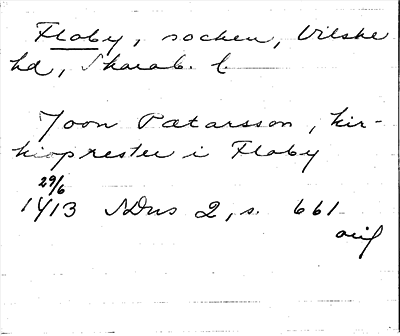 Floby, socken, Vilske
hd, Skarab. l.
Joon Pætarsson, kir-
kioprester i Floby
29/6
1413 SDns 2, s. 661
orig